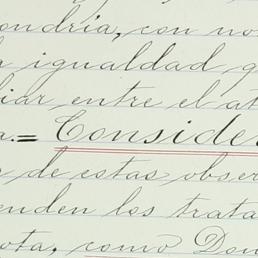 ondria, con no
a igualdad q
liar entre el at
a.= Conside
de estas obser
enden los trata
ota, como Don